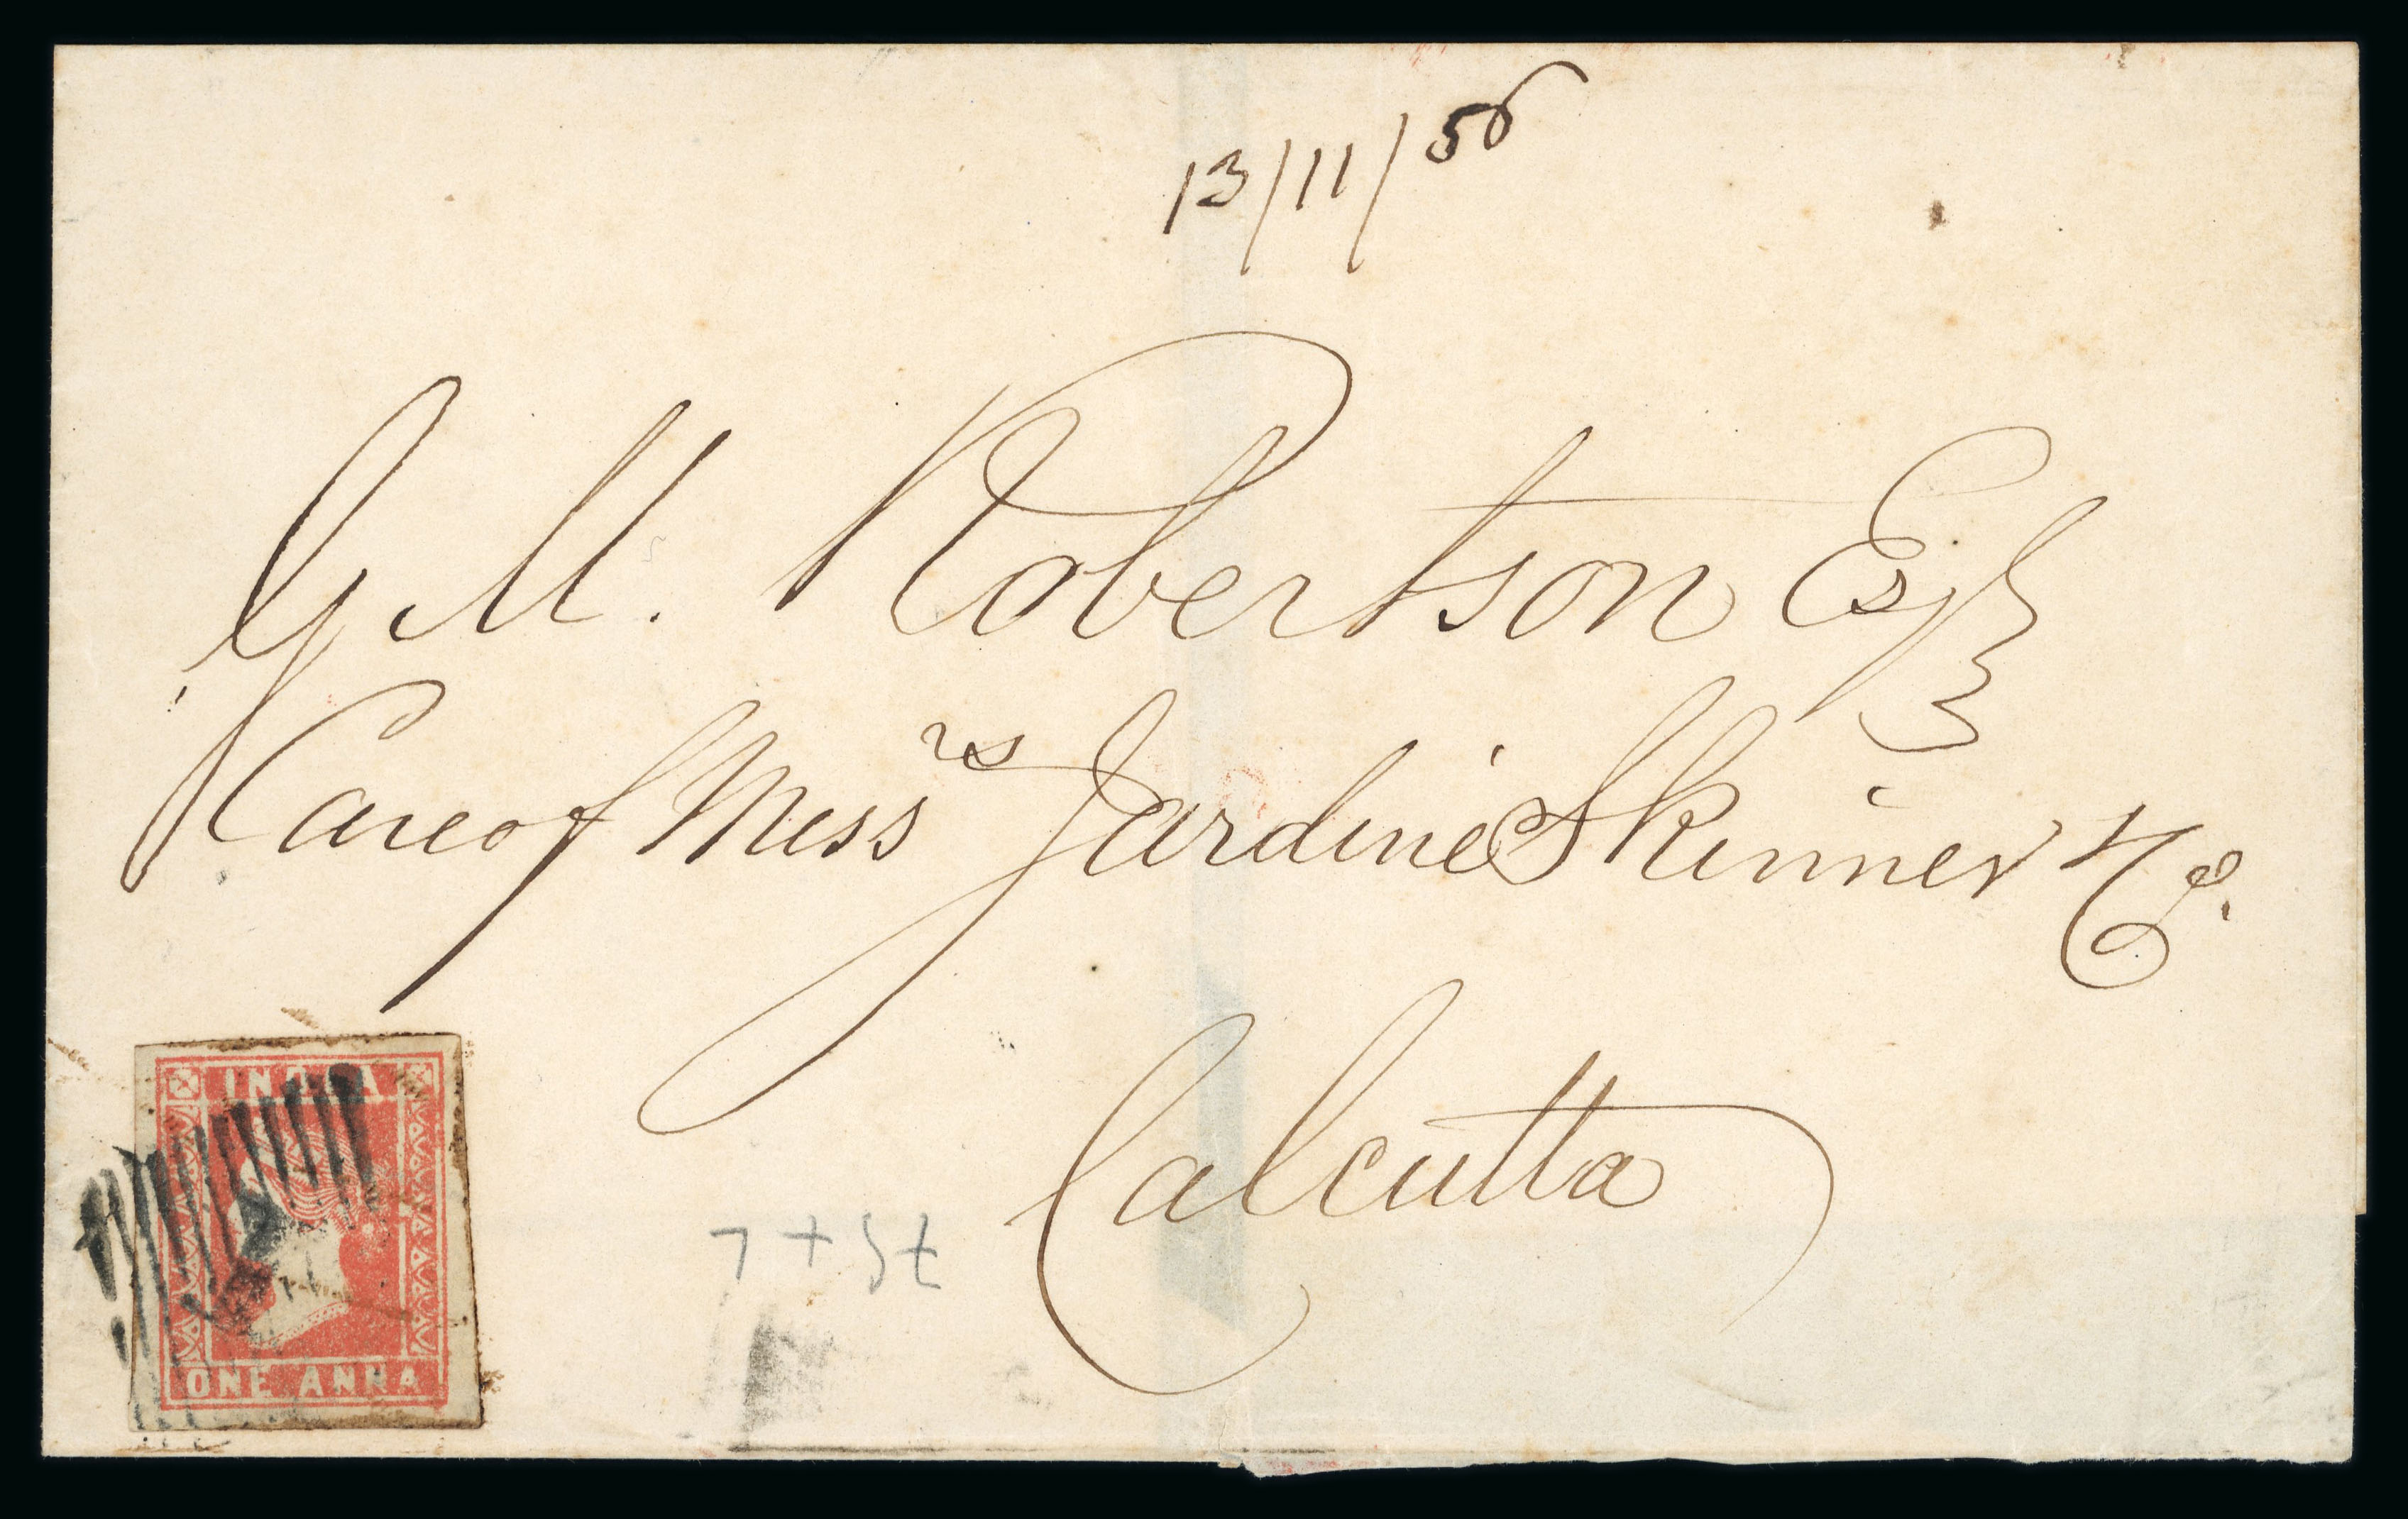 13/11/56
G M. Robertson Esqr
Care of Messrs Jardine Skinner & Co.
Calcutta
INDIA
ONE ANNA